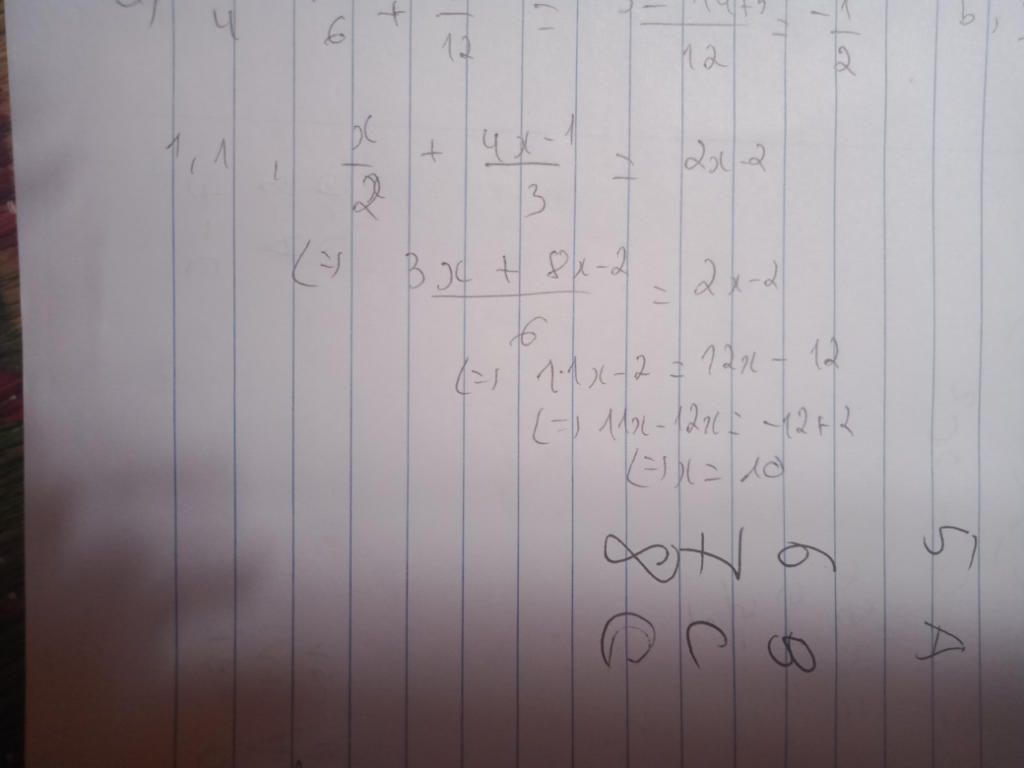 4 6 + 12 = 12 = -1/2 b,
1,1, x/2 + 4x-1/3 = 2x-2
(=) 3x + 8x-2/6 = 2x-2
(=) 11x-2 = 12x - 12
(=) 11x-12x = -12+2
(=) x = 10
5 A
6 B
7 C
8 C